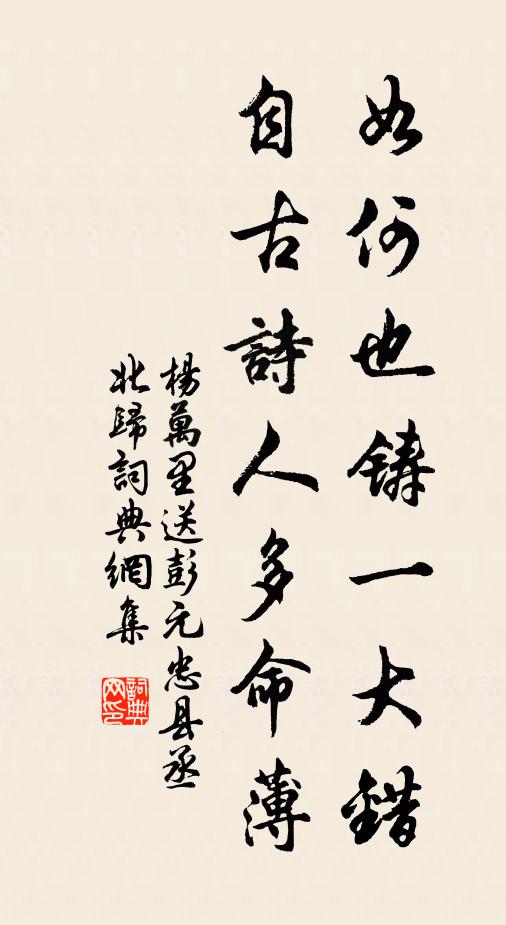 如何也鑄一大錯
自古詩人多命薄
楊萬里送彭元忠县丞
北歸詞典網集
詞典
网印